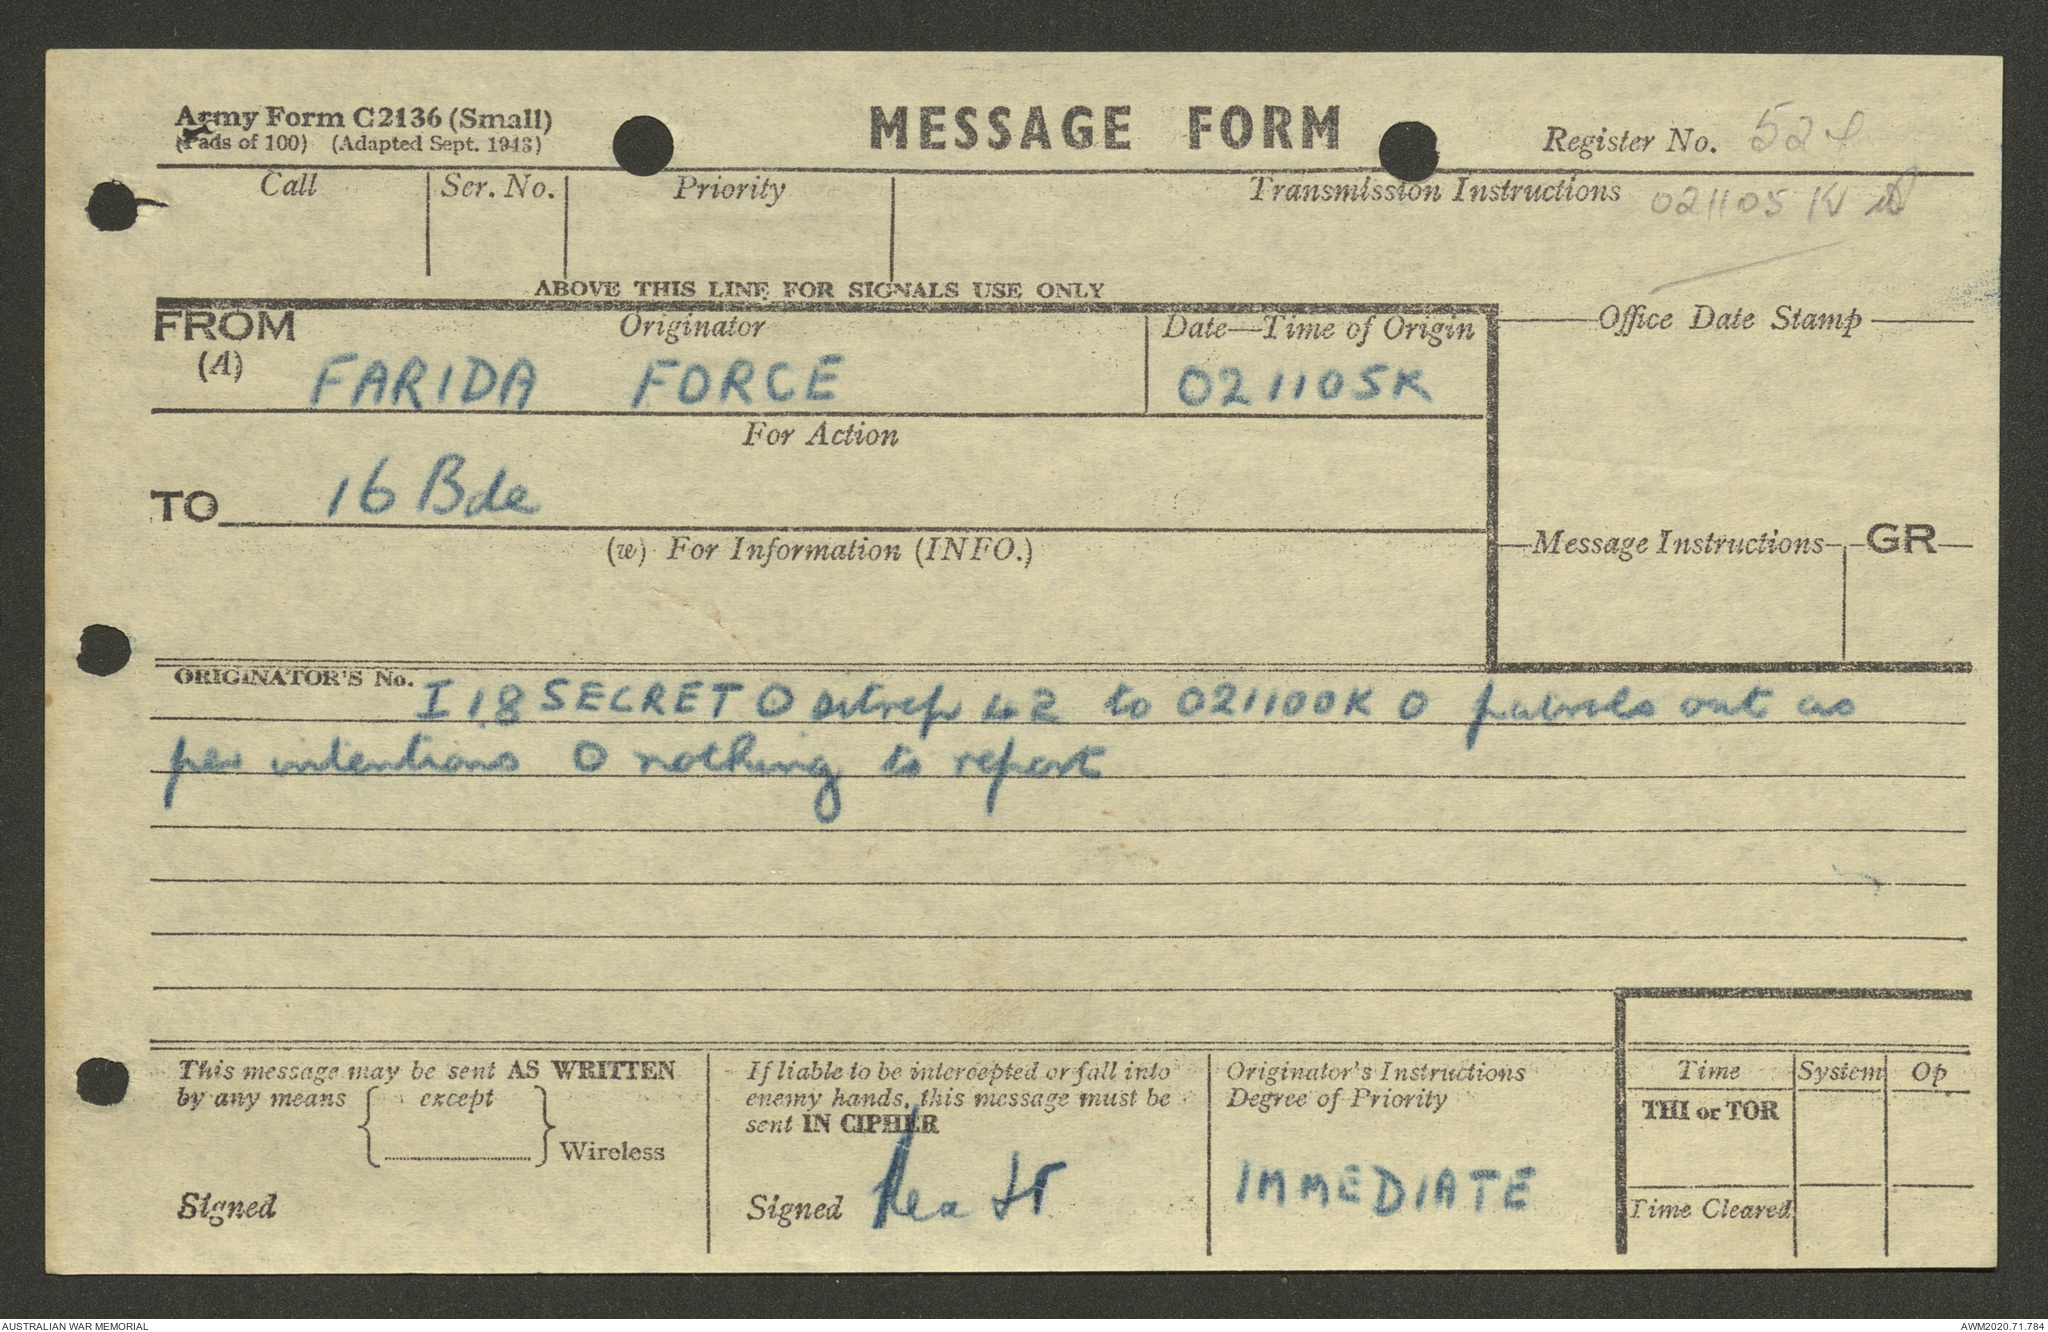 Army Form C2136 (Small)
(Pads of 100) (Adapted Sept. 1943)
MESSAGE FORM
Register No.
Call
Ser. No.
Priority
Transmission Instructions
021105 K
ABOVE THIS LINE FOR SIGNALS USE ONLY
FROM
(A)
Originator
FARIDA FORCE
Date—Time of Origin
021105K
Office Date Stamp
For Action
TO
16 Bde
(w) For Information (INFO.)
Message Instructions
GR
ORIGINATOR'S No. I 18 SECRET O sitrep 42 to 021100K O patrols out as
per intentions O nothing to report
This message may be sent AS WRITTEN
by any means except
Wireless
Signed
If liable to be intercepted or fall into
enemy hands, this message must be
sent IN CIPHER
Signed
Originator's Instructions
Degree of Priority
IMMEDIATE
Time System Op
THI or TOR
Time Cleared
AUSTRALIAN WAR MEMORIAL
AWM2020.71.784